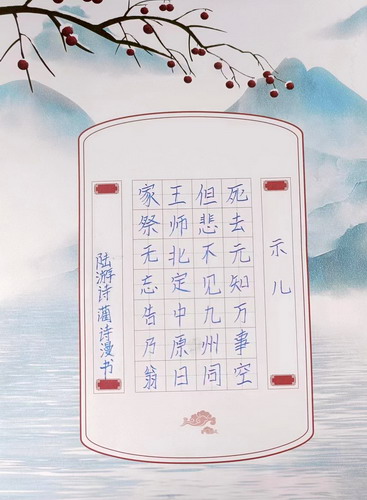 示儿
死去元知万事空
但悲不见九州同
王师北定中原日
家祭无志告乃翁
陆游诗蔺诗漫书